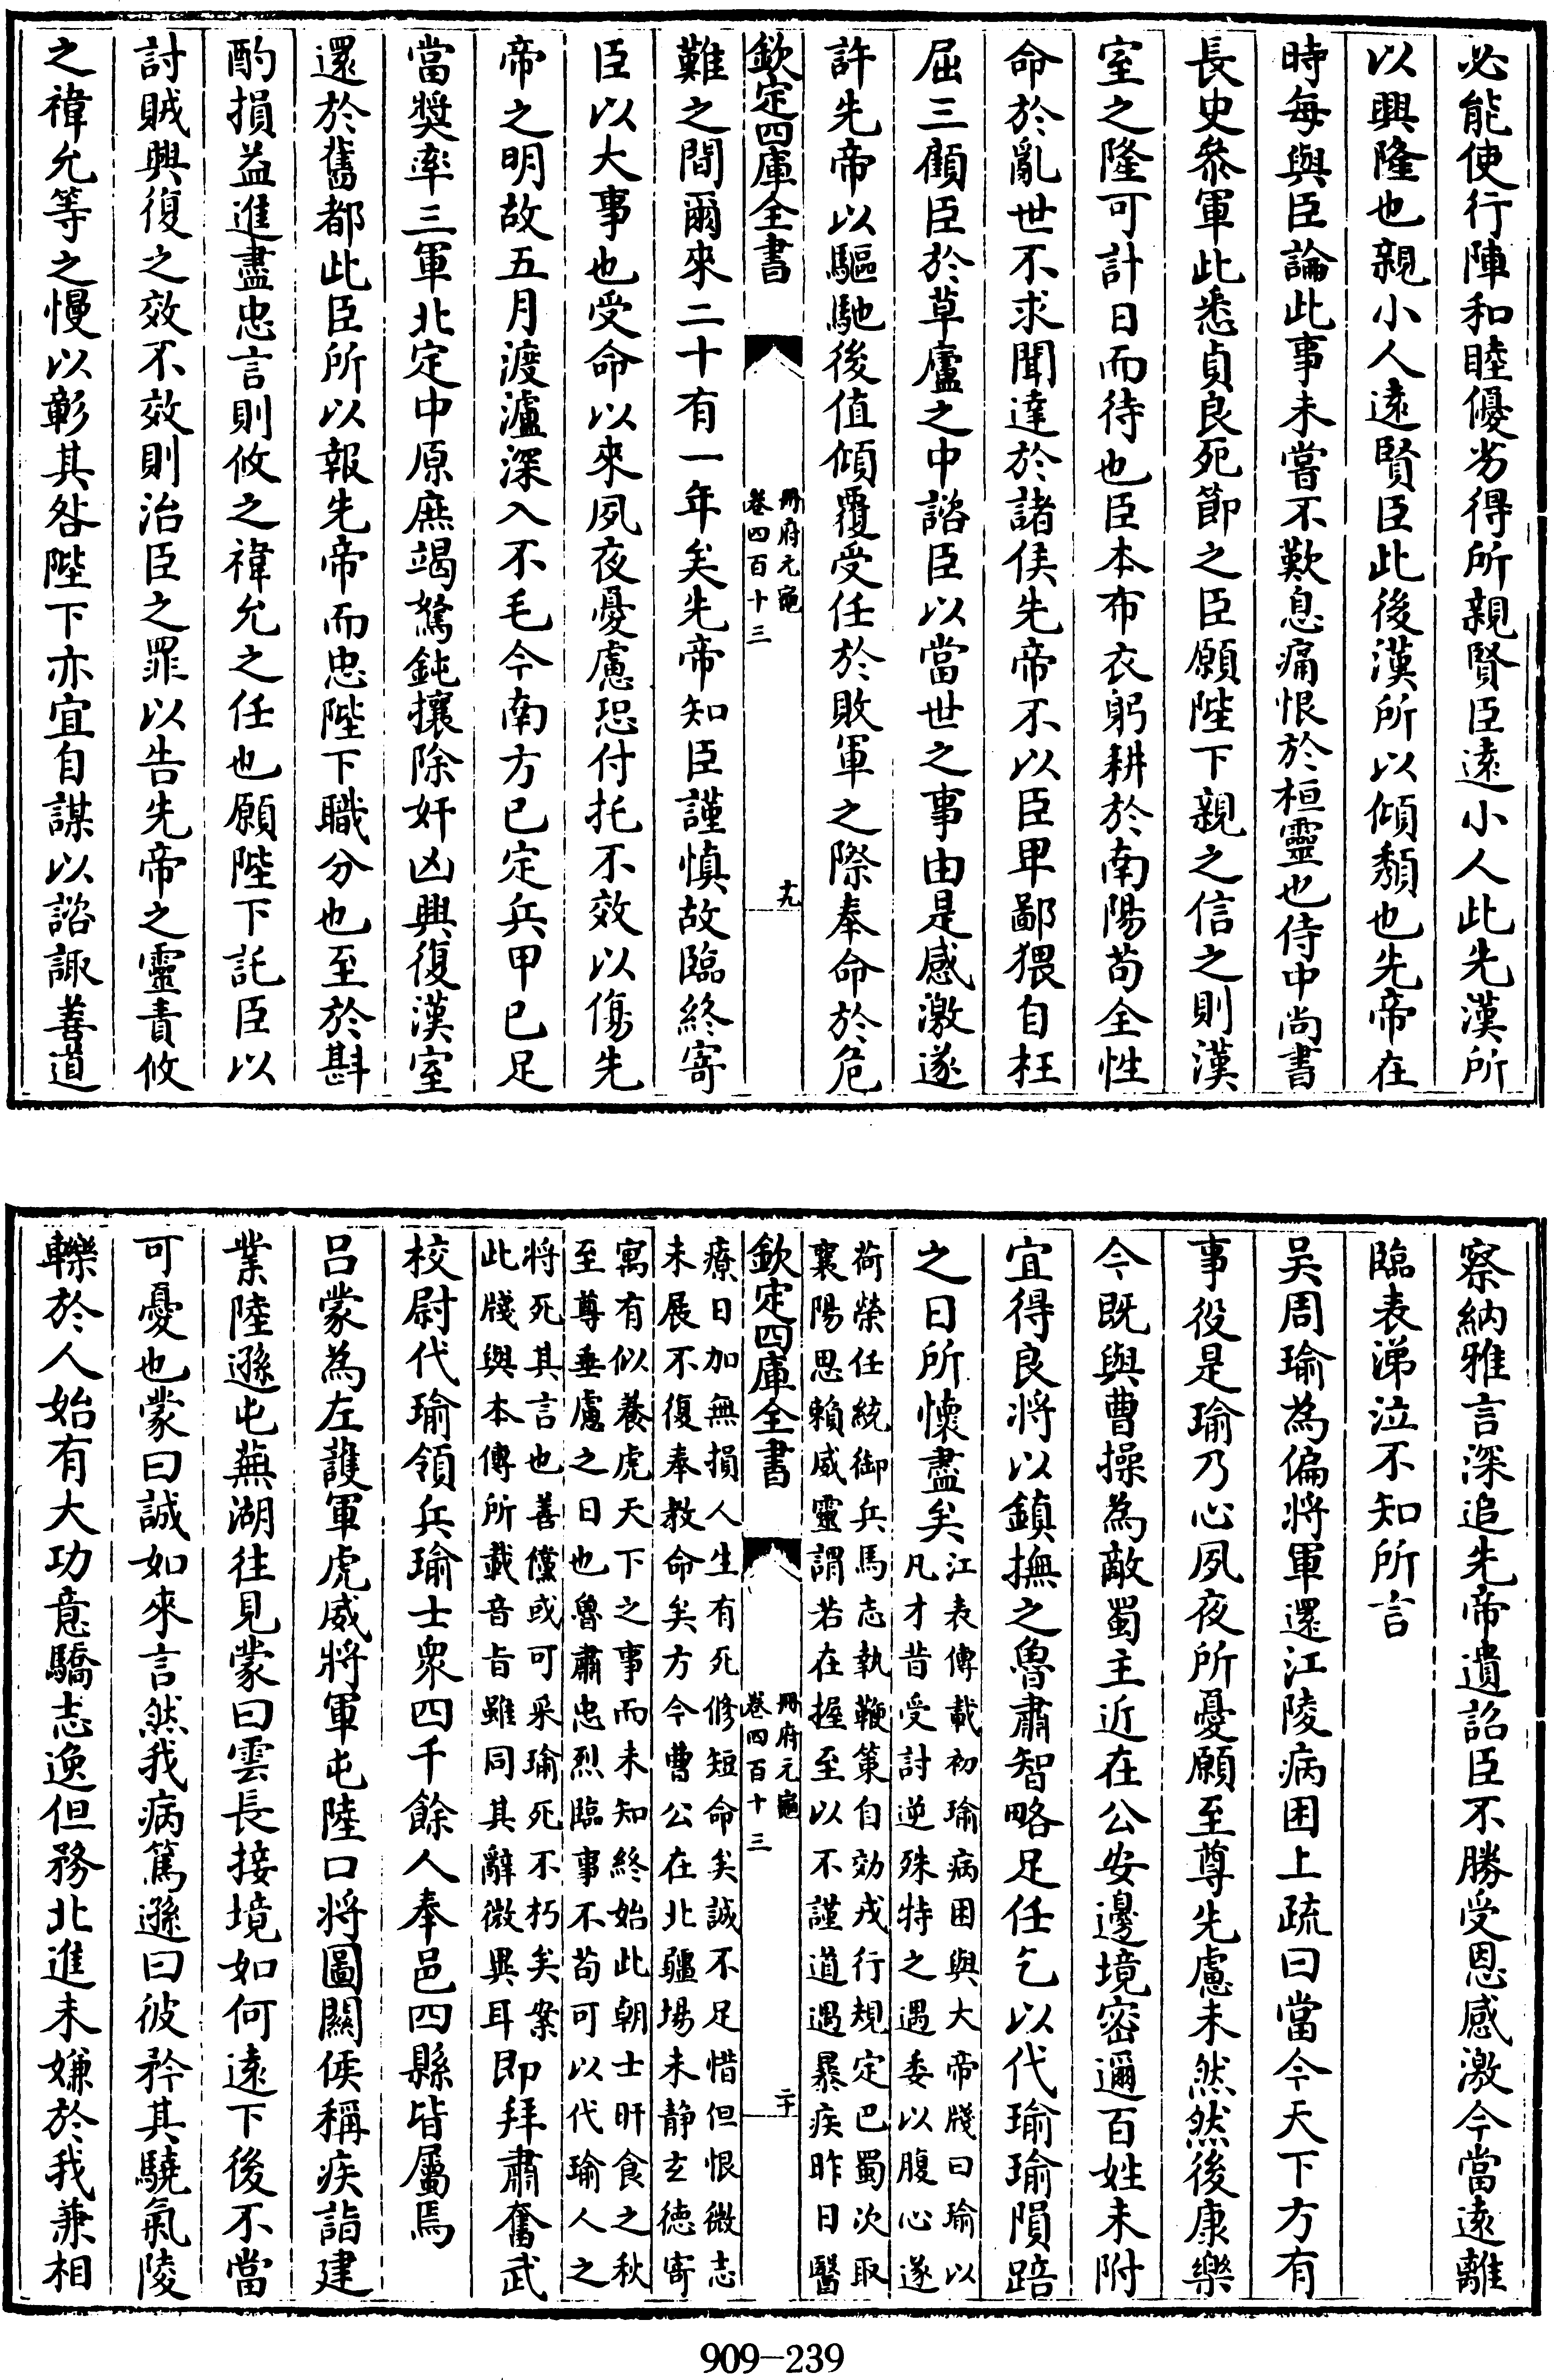 必能使行陣和睦優劣得所親賢臣遠小人此先漢所
以興隆也親小人遠賢臣此後漢所以傾頽也先帝在
時每與臣論此事未嘗不歎息痛恨於桓靈也侍中尚書
長史參軍此悉貞良死節之臣願陛下親之信之則漢
室之隆可計日而待也臣本布衣躬耕於南陽苟全性
命於亂世不求聞達於諸侯先帝不以臣卑鄙猥自枉
屈三顧臣於草廬之中諮臣以當世之事由是感激遂
許先帝以驅馳後值傾覆受任於敗軍之際奉命於危
欽定四庫全書
冊府元龜
卷四百十三
十九
難之間爾來二十有一年矣先帝知臣謹慎故臨終寄
臣以大事也受命以來夙夜憂慮恐付托不效以傷先
帝之明故五月渡瀘深入不毛今南方已定兵甲已足
當奬率三軍北定中原庶竭駑鈍攘除奸凶興復漢室
還於舊都此臣所以報先帝而忠陛下職分也至於斟
酌損益進盡忠言則攸之禕允之任也願陛下託臣以
討賊興復之效不效則治臣之罪以告先帝之靈責攸
之禕允等之慢以彰其咎陛下亦宜自謀以諮諏善道
察納雅言深追先帝遺詔臣不勝受恩感激今當遠離
臨表涕泣不知所言
吳周瑜為偏將軍還江陵病困上疏曰當今天下方有
事役是瑜乃心夙夜所憂願至尊先慮未然然後康樂
今既與曹操為敵蜀主近在公安邊境密邇百姓未附
宜得良將以鎮撫之魯肅智略足任乞以代瑜瑜隕踣
之日所懷盡矣江表傳載初瑜病困與大帝牋曰瑜以
凡才昔受討逆殊特之遇委以腹心遂
荷榮任統御兵馬志執鞭策自効戎行規定巴蜀次取
襄陽思賴威靈謂若在握至以不謹道遇暴疾昨日醫
欽定四庫全書
冊府元龜
卷四百十三
二十
療日加無損人生有死修短命矣誠不足惜但恨微志
未展不復奉教命矣方今曹公在北疆場未静玄德寄
寓有似養虎天下之事而未知終始此朝士旰食之秋
至尊垂慮之日也魯肅忠烈臨事不苟可以代瑜人之
將死其言也善儻或可采瑜死不朽矣案
此牋與本傳所載音旨雖同其辭微異耳即拜肅奮武
校尉代瑜領兵瑜士衆四千餘人奉邑四縣皆屬焉
吕蒙為左護軍虎威將軍屯陸口將圖關侯稱疾詣建
業陸遜屯蕪湖往見蒙曰雲長接境如何遠下後不當
可憂也蒙曰誠如來言然我病篤遜曰彼矜其驍氣陵
轢於人始有大功意驕志逸但務北進未嫌於我兼相
909-239